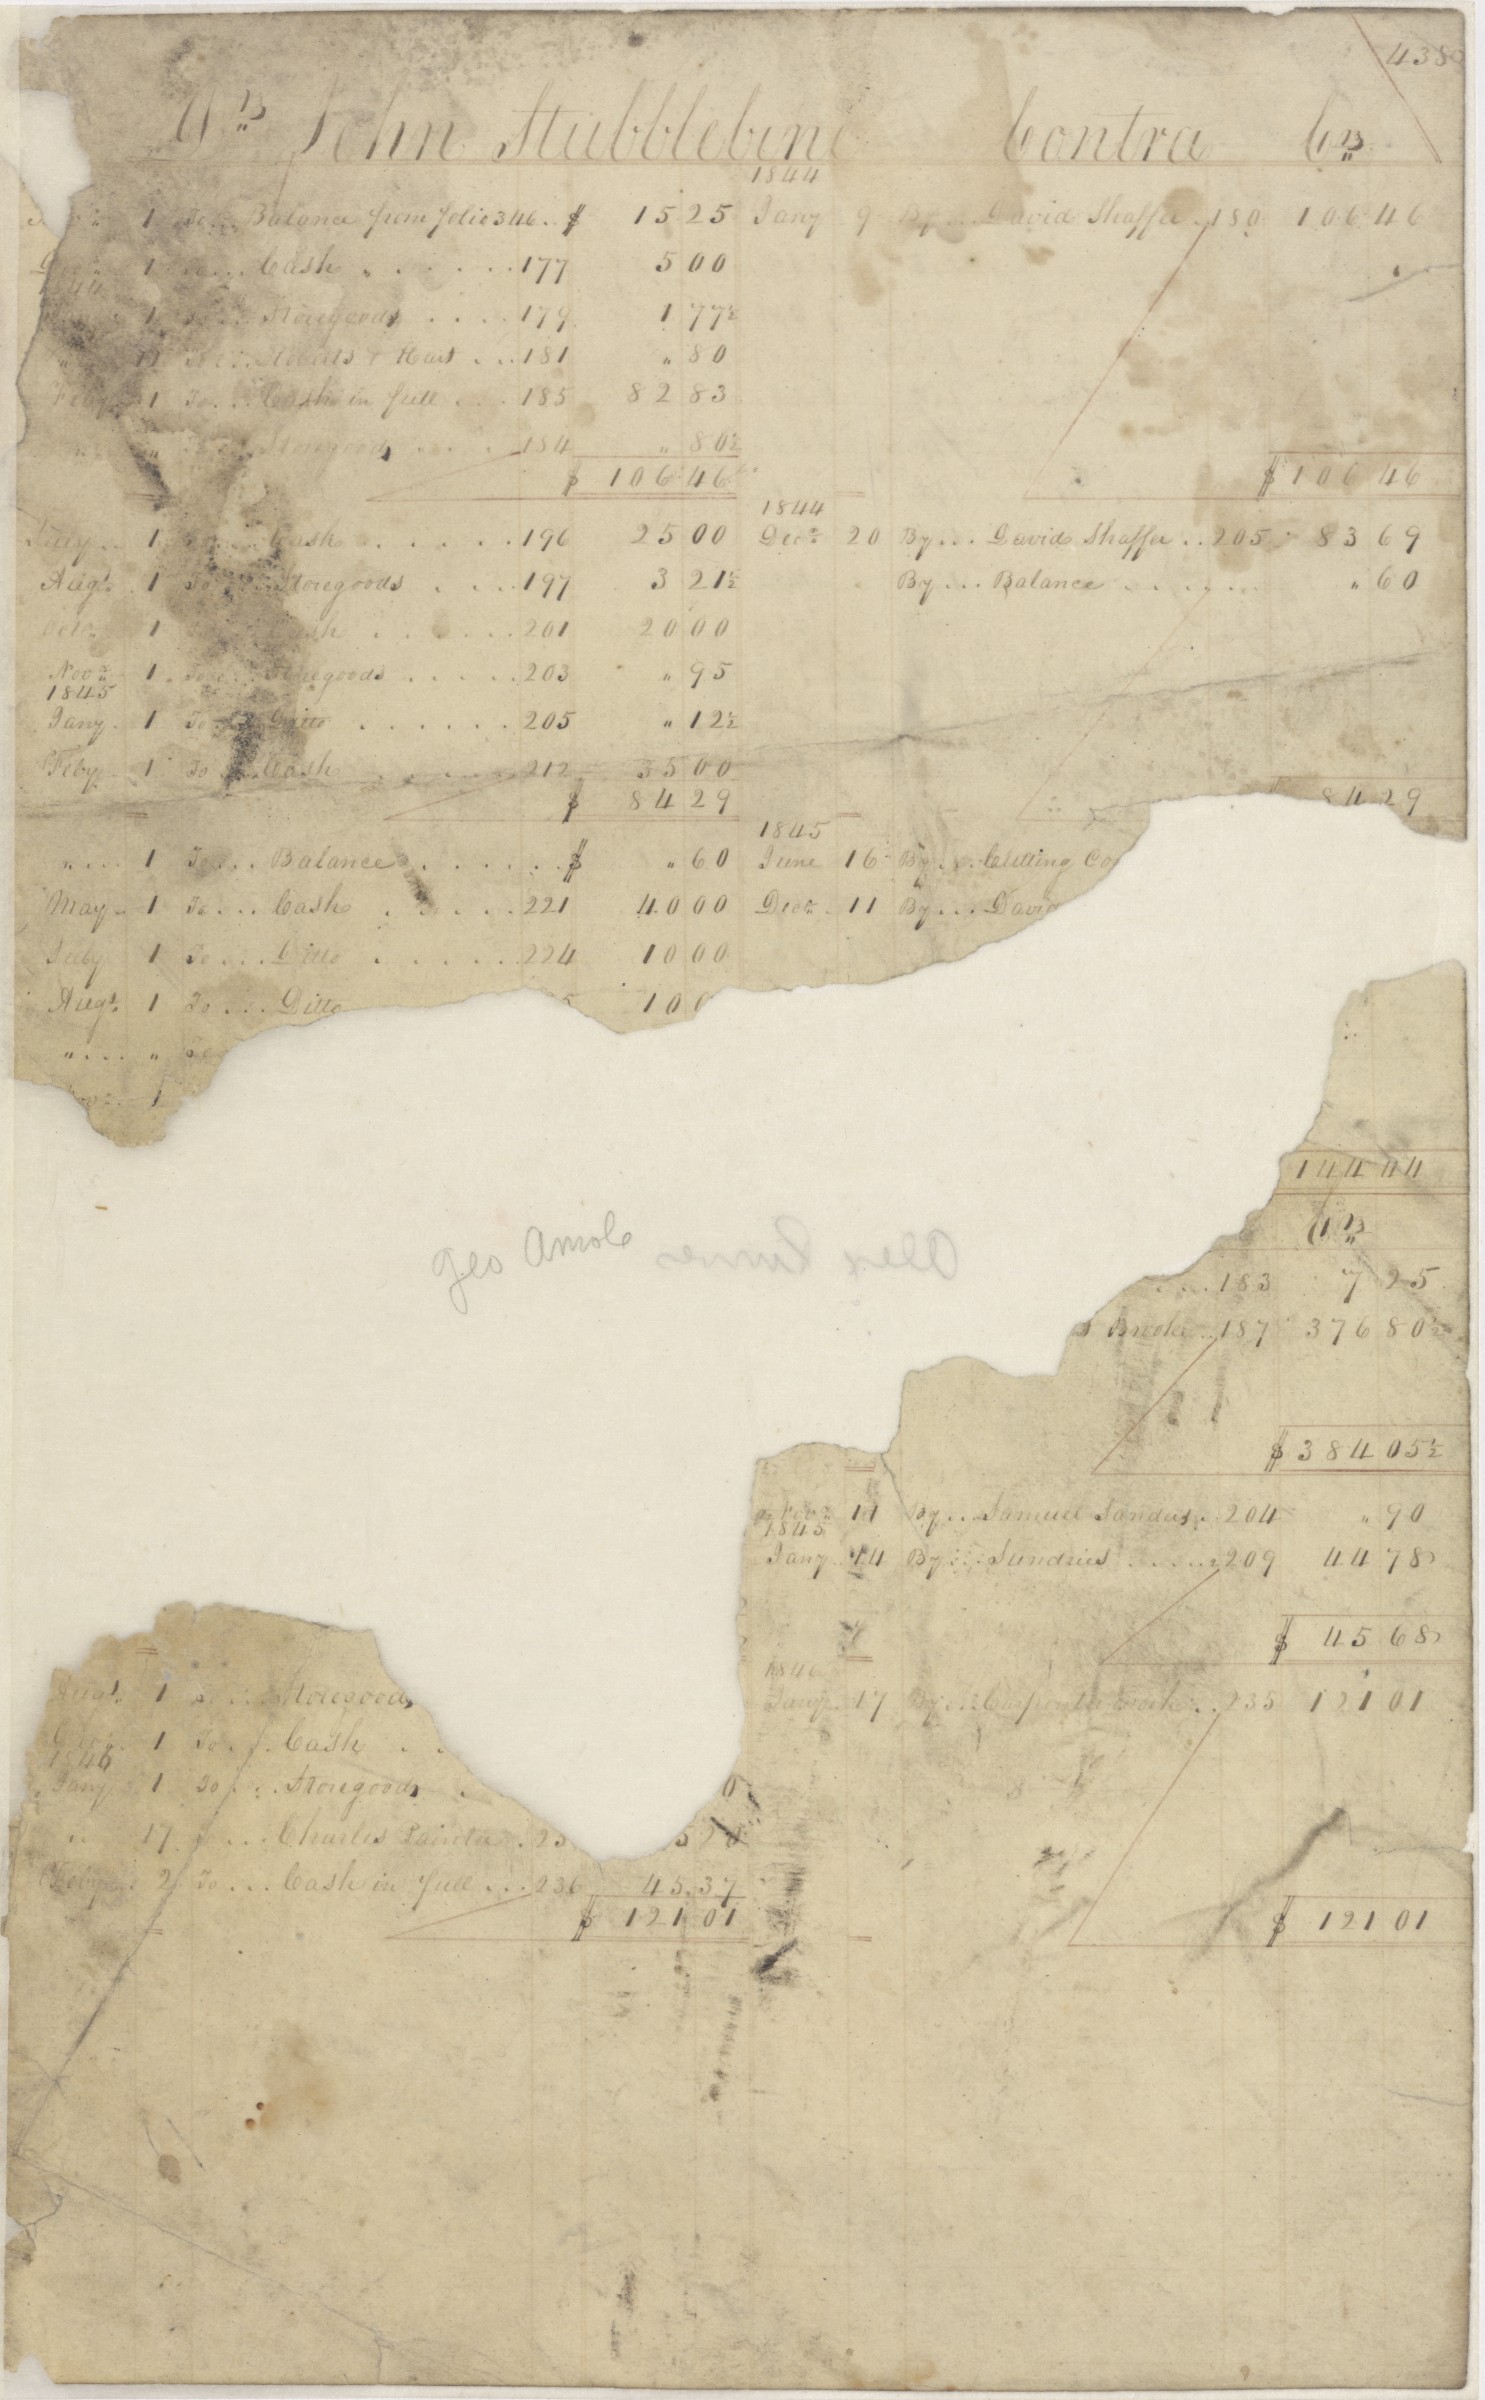 438
Dr John Stubblebine Contra Cr
1844
1 To... Balance from folio 346.. $ 15 25 Jany 9 By... David Shaffer. 180 106 46
Decr 1 To... Cash . . . . . . 177 5 00
1844
1 To... Storegoods . . . . 179 1 77½
" 11 To... & Hart . . . 181 " 80
Feby 1 To... Cash in full . . . 185 82 83
" " Storegoods . . . . 184 " 80½
$ 106 46 $ 106 46
1844
July .. 1 To... Cash . . . . . . 196 25 00 Decr 20 By... David Shaffer .. 205 83 69
Augt. 1 To... Storegoods . . . . 197 3 21½ By... Balance . . . . . . " 60
Octr 1 Cash . . . . . . 201 20 00
Novr 1 To... Storegoods . . . . . 203 " 95
1845
Jany. 1 To... Ditto . . . . . . 205 " 12½
Feby. 1 To... Cash . . . . . . 212 35 00
$ 84 29 84 29
1845
" ... 1 To... Balance . . . . . . $ " 60 June 16 By... Cutting Co
May .. 1 To... Cash . . . . . 221 40 00 Decr. 11 By... David
July 1 To... Ditto . . . . . 224 10 00
Augt. 1 To... Ditto 5 10 0
" ... " To
1
144 44
Cr
geo Amole
. . . 183 7 25
Brooke .. 187 376 80½
$ 384 05½
Novr 11 By.. Samuel Sandus. 204 " 90
1845
Jany. 14 By... Sundries . . . . . 209 44 78
$ 45 68
1846
Augt. 1 To... Storegoods Jany. 17 By... Carpenter work .. 235 121 01
1 To... Cash . .
1846
Jany 1 To... Storegoods . 0
" 17 ... Charles Painter . 23 5 20
Feby. 2 To... Cash in full ... 236 45 37
$ 121 01 $ 121 01